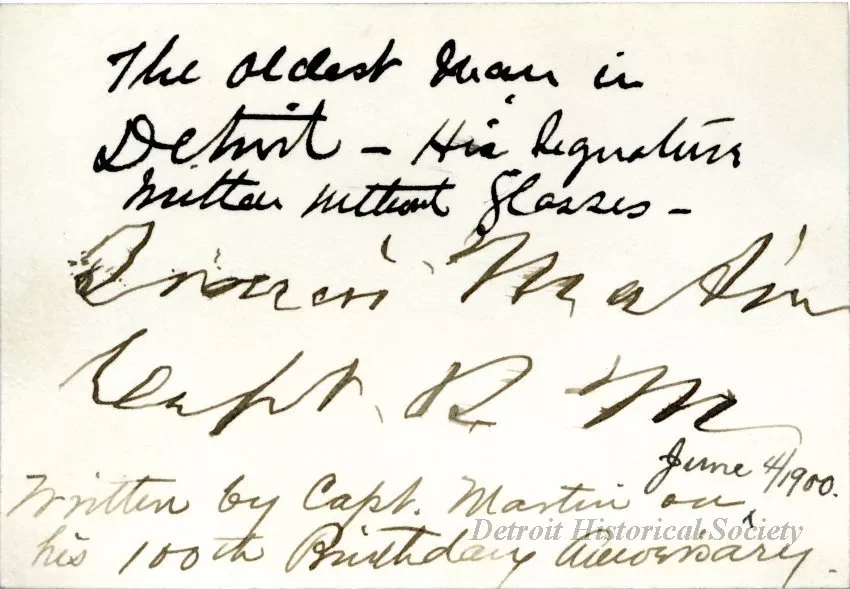 The oldest Man in
Detroit – His Signature
Written without Glasses –
Francis Martin
Capt. R M
June 4/1900.
Written by Capt. Martin on
his 100th Birthday
Detroit Historical Society